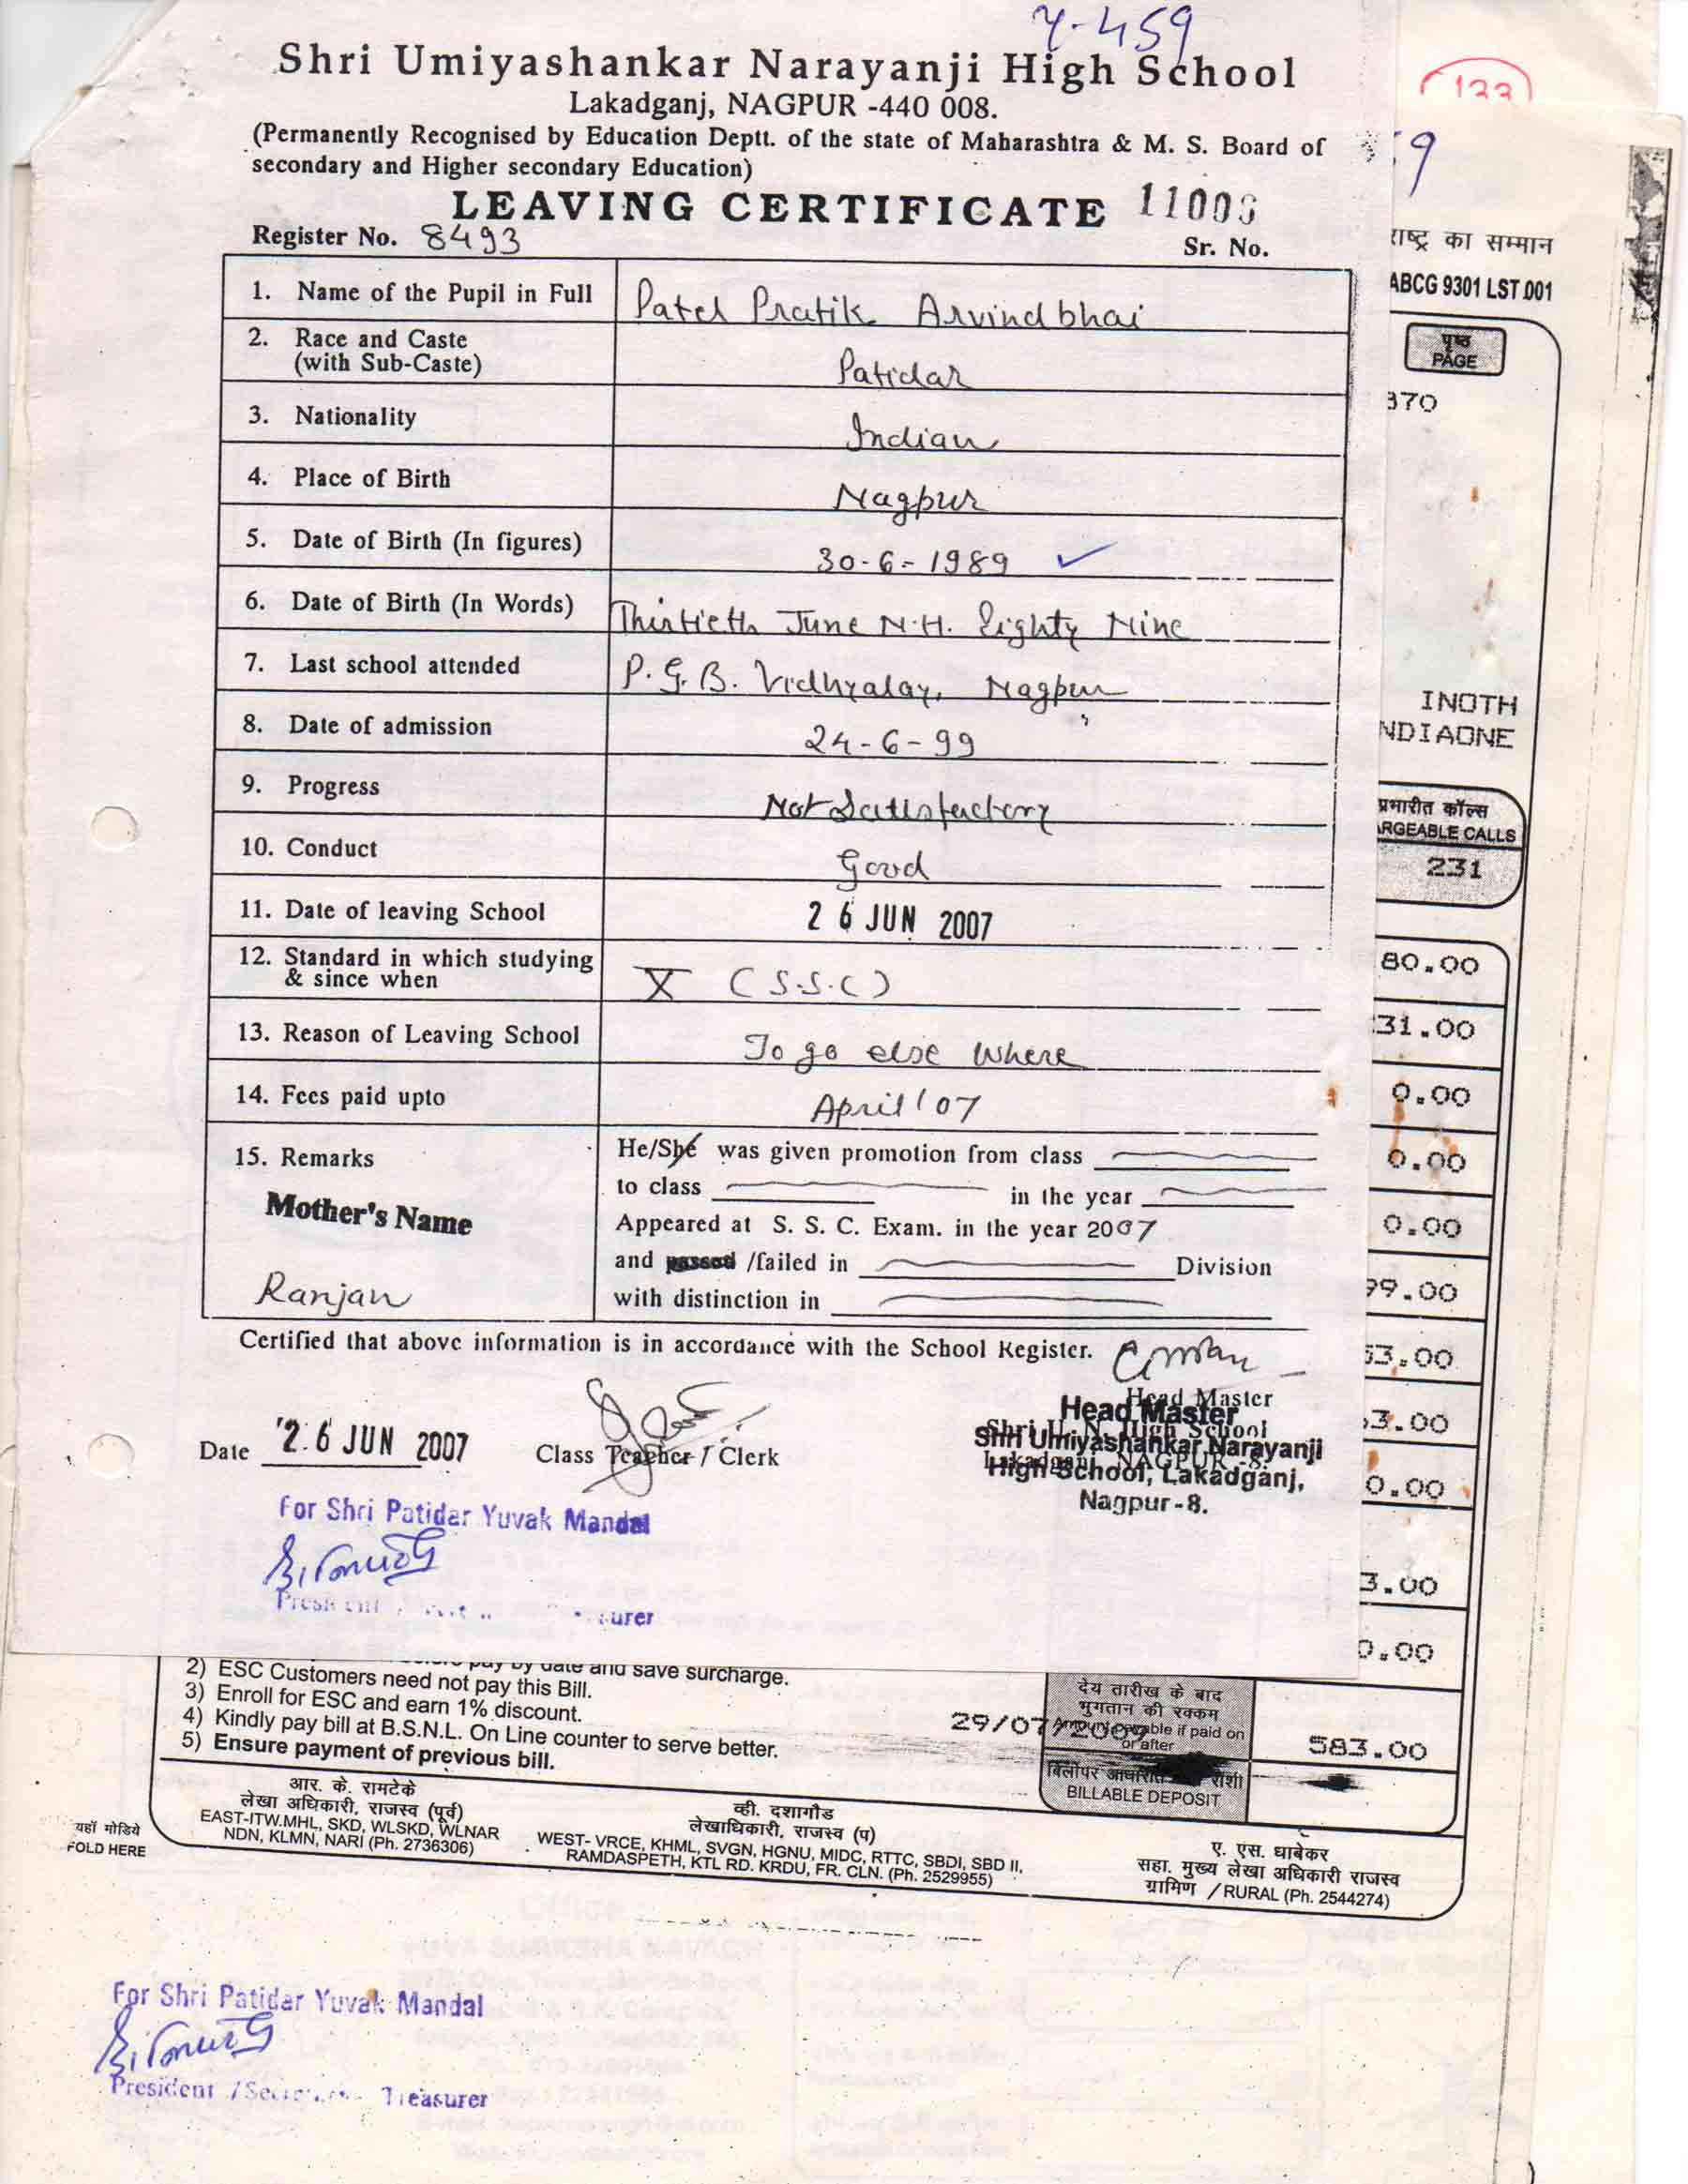 4-459
Shri Umiyashankar Narayanji High School
Lakadganj, NAGPUR -440 008.
(Permanently Recognised by Education Deptt. of the state of Maharashtra & M. S. Board of
secondary and Higher secondary Education)
LEAVING CERTIFICATE
Register No. 8493 Sr. No.
1. Name of the Pupil in Full Patel Pratik Arvindbhai
2. Race and Caste
(with Sub-Caste) Patidar
3. Nationality Indian
4. Place of Birth Nagpur
5. Date of Birth (In figures) 30-6-1989
6. Date of Birth (In Words) Thirtieth June N.H. Eighty Nine
7. Last school attended P.G.B. Vidhyalay, Nagpur
8. Date of admission 24-6-99
9. Progress Not Satisfactory
10. Conduct Good
11. Date of leaving School 26 JUN 2007
12. Standard in which studying
& since when X (S.S.C)
13. Reason of Leaving School To go else where
14. Fees paid upto April '07
15. Remarks He/She was given promotion from class
to class in the year
Mother's Name
Appeared at S. S. C. Exam. in the year 2007
and passed /failed in Division
Ranjan
with distinction in
Certified that above information is in accordance with the School Register.
Date 26 JUN 2007 Class Teacher / Clerk
Head Master
Shri U. N. High School
Lakadganj, NAGPUR-8.
Head Master
Shri Umiyashankar Narayanji
High School, Lakadganj,
Nagpur-8.
For Shri Patidar Yuvak Mandal
133
9
राष्ट्र का सम्मान
ABCG 9301 LST 001
पृष्ठ
PAGE
370
INOTH
NDIAONE
प्रभारीत कॉल्स
ARGEABLE CALLS
231
80.00
31.00
0.00
0.00
0.00
99.00
53.00
3.00
0.00
3.00
0.00
pay by date and save surcharge.
2) ESC Customers need not pay this Bill.
3) Enroll for ESC and earn 1% discount.
4) Kindly pay bill at B.S.N.L. On Line counter to serve better.
5) Ensure payment of previous bill.
29/07/2009
देय तारीख के बाद
भुगतान की रक्कम
Amount payable if paid on
or after
583.00
BILLABLE DEPOSIT
आर. के. रामटेके
लेखा अधिकारी, राजस्व (पूर्व)
EAST-ITW.MHL, SKD, WLSKD, WLNAR
NDN, KLMN, NARI (Ph. 2736306)
व्ही. दशागौड
लेखाधिकारी, राजस्व (प)
WEST- VRCE, KHML, SVGN, HGNU, MIDC, RTTC, SBDI, SBD II,
RAMDASPETH, KTL RD. KRDU, FR. CLN. (Ph. 2529955)
ए. एस. धाबेकर
सहा. मुख्य लेखा अधिकारी राजस्व
ग्रामिण / RURAL (Ph. 2544274)
यहाँ मोडिये
FOLD HERE
For Shri Patidar Yuvak Mandal
President / Treasurer